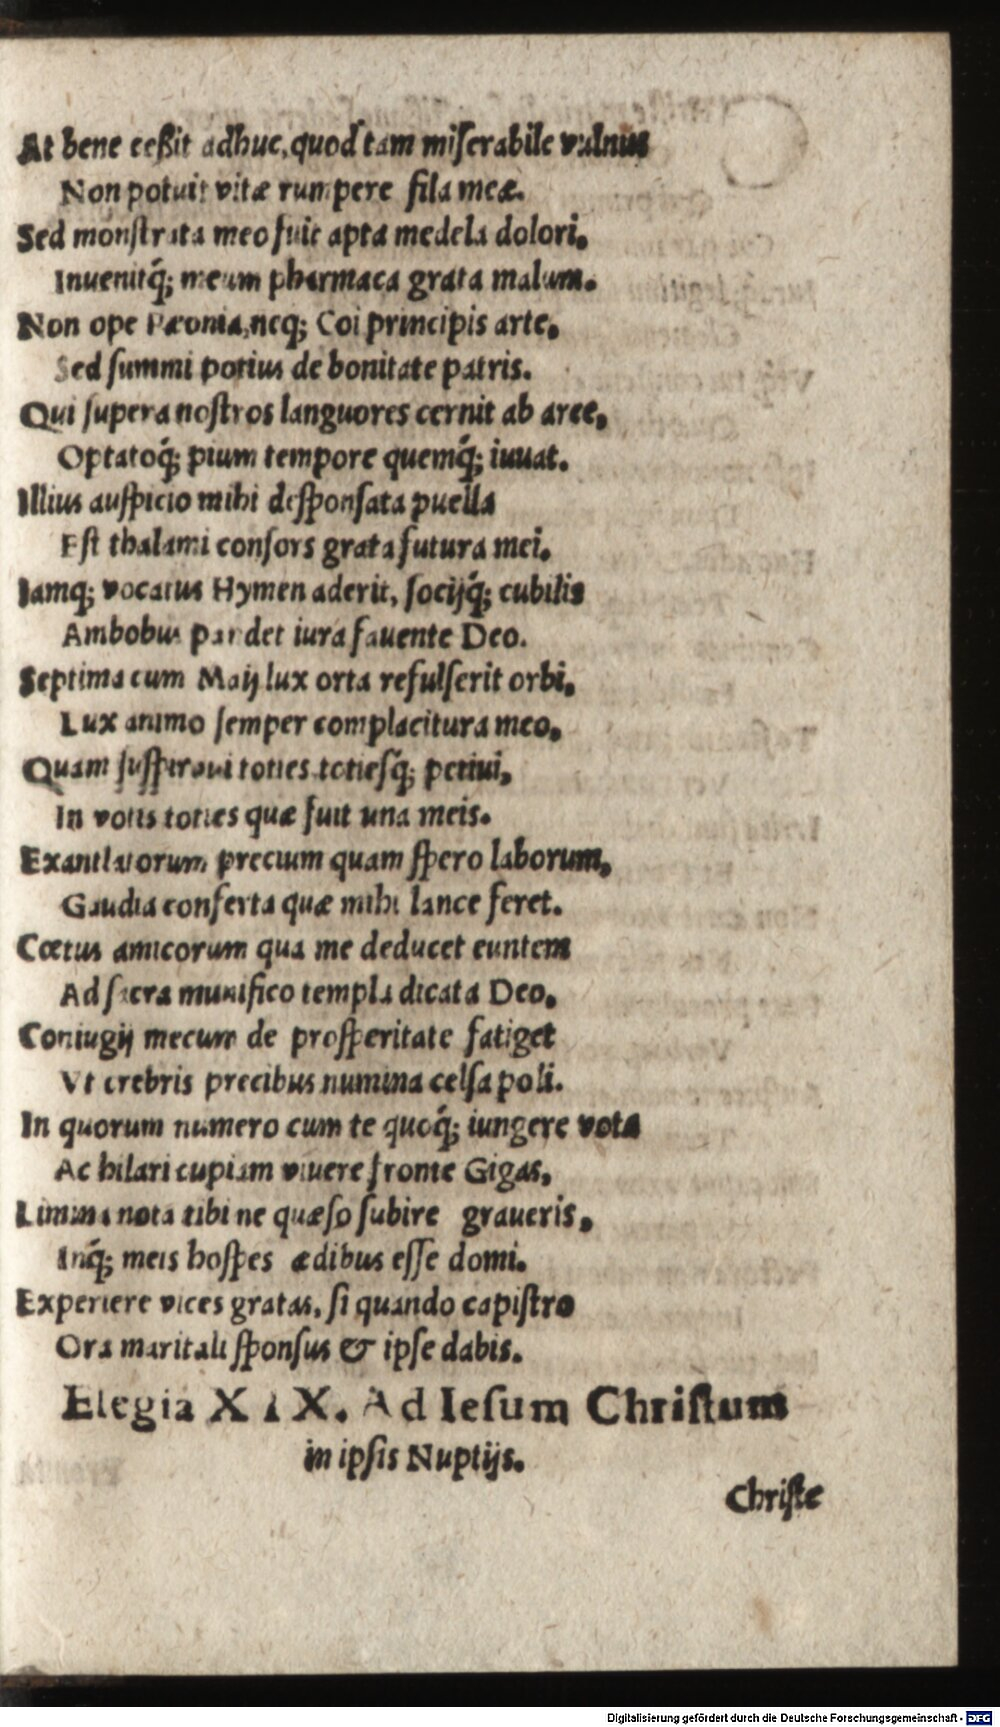 At bene ceßit adhuc, quod tam miſerabile vulnus
Non potuit vitæ rumpere fila meæ.
Sed monſtrata meo fuit apta medela dolori,
Inuenitq́; meum pharmaca grata malum.
Non ope Pæonia, neq; Coi principis arte,
Sed ſummi potius de bonitate patris.
Qui ſupera noſtros languores cernit ab arce,
Optatoq́; pium tempore quemq́; iuuat.
Illius auſpicio mihi deſponſata puella
Eſt thalami conſors grata futura mei.
Iamq; vocatus Hymen aderit, ſocijq́; cubilis
Ambobus pandet iura fauente Deo.
Septima cum Maij lux orta refulſerit orbi,
Lux animo ſemper complacitura meo,
Quam ſuſpiraui toties totieſq́; petiui,
In votis toties quæ fuit una meis.
Exantlatorum precium quam ſpero laborum,
Gaudia conferta quæ mihi lance feret.
Cœtus amicorum qua me deducet euntem
Ad ſacra munifico templa dicata Deo,
Coniugij mecum de proſperitate fatiget
Vt crebris precibus numina celſa poli.
In quorum numero cum te quoq́; iungere vota
Ac hilari cupiam viuere fronte Gigas,
Limina nota tibi ne quæſo ſubire graueris,
Inq́; meis hoſpes ædibus eſſe domi.
Experiere vices gratas, ſi quando capiſtro
Ora maritali ſponſus & ipſe dabis.
Elegia XIX. Ad Ieſum Chriſtum
in ipſis Nuptijs.
Chriſte
Digitalisierung gefördert durch die Deutsche Forschungsgemeinschaft - DFG